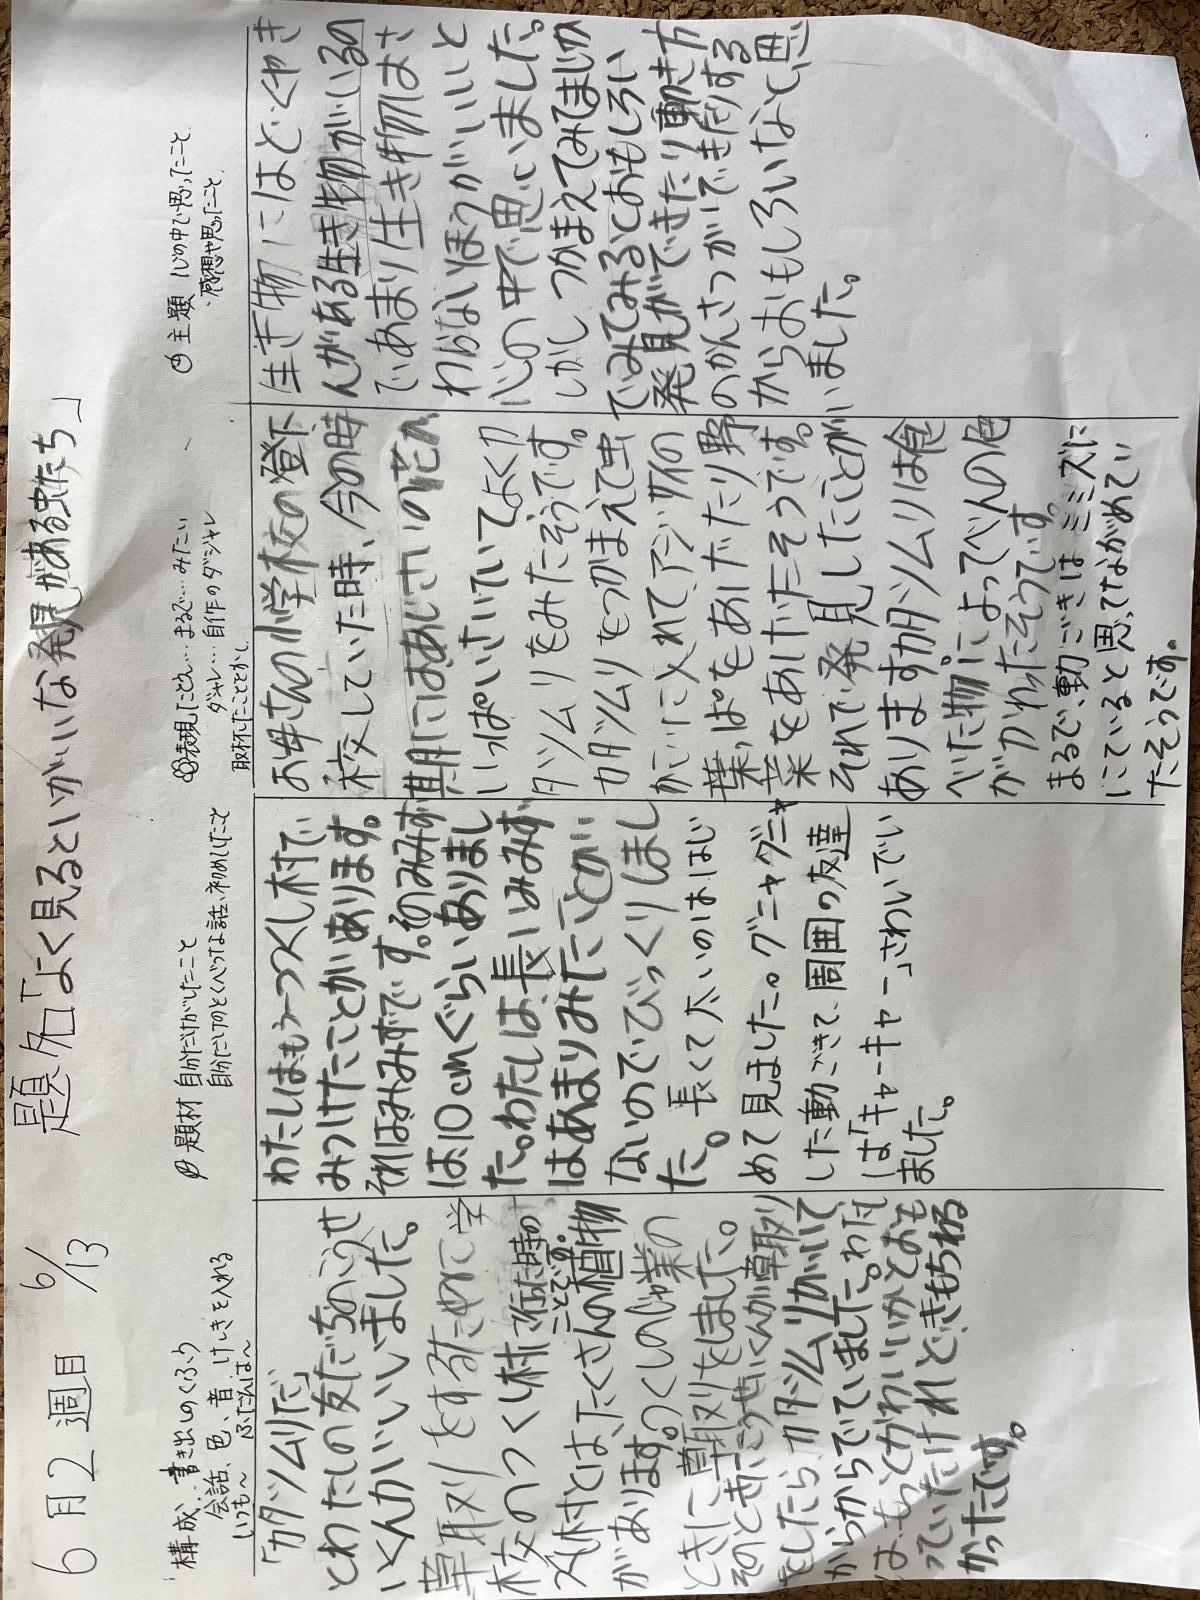 6月2週目 6/13 題名「よく見るといがいな発見がある虫たち」
構成:書き出しのくふう
会話、色、音 けしきを入れる
いつも〜 ふだんは〜
「カタツムリだ」
とわたしの友だちのこうせ
いくんがいいいました。
草取りをするために学
校のつくし村で行った時の
ことです。
つくし村とは、たくさんの植物
があります。つくしのじゅ業の
ときに草取りをしました。
そのときにこうせいくんが草取り
をしたら、カタツムリがいて
からからでていました。わたし
はもっとかわいいかとおも
っていたけれどきもちわる
かったです。
題材 自分だけがしたこと
自分だけのとくべつな話、初めてしたこと
わたしはもう一つつくし村で
みつけたことがあります。
それはみみずです。そのみみず
は10cmぐらいありまし
た。わたしは、長いみみず
はあまりみたことが
ないのでびっくりしまし
た。長くて太いのははじ
めて見ました。グニャグニャ
した動ごきで、周囲の友達
は「キャーキャー」さわいでい
ました。
表現 たとえ…まるで…みたい
ダジャレ…自作のダジャレ
取材したこととかし
お母さんの小学校の登下
校していた時、今の時
期にはあじさいの花が
いっぱいさいていてよくカ
タツムリをみたそうです。
カタツムリをつかまえて虫
かごに入れてアジサイの
葉っぱをあげたり野
菜をあげたそうです。
それで発見したことが
ありますカタツムリは食
べた物によってべんの色
がかわったそうです。
まるで、動ごきはミミズに
にていると思ってながめてい
たそうです。
主題 心の中で思ったこと
・感想や思ったこと
生き物にはどくやき
んがある生き物がいるの
であまり生き物はさ
わらないほうがいいと
心の中で思いました。
しかし つかまえてみてまじか
でみてみるとおもしろい
発見ができたり動き方
のかんさつができたりする
からおもしろいなと思
いました。